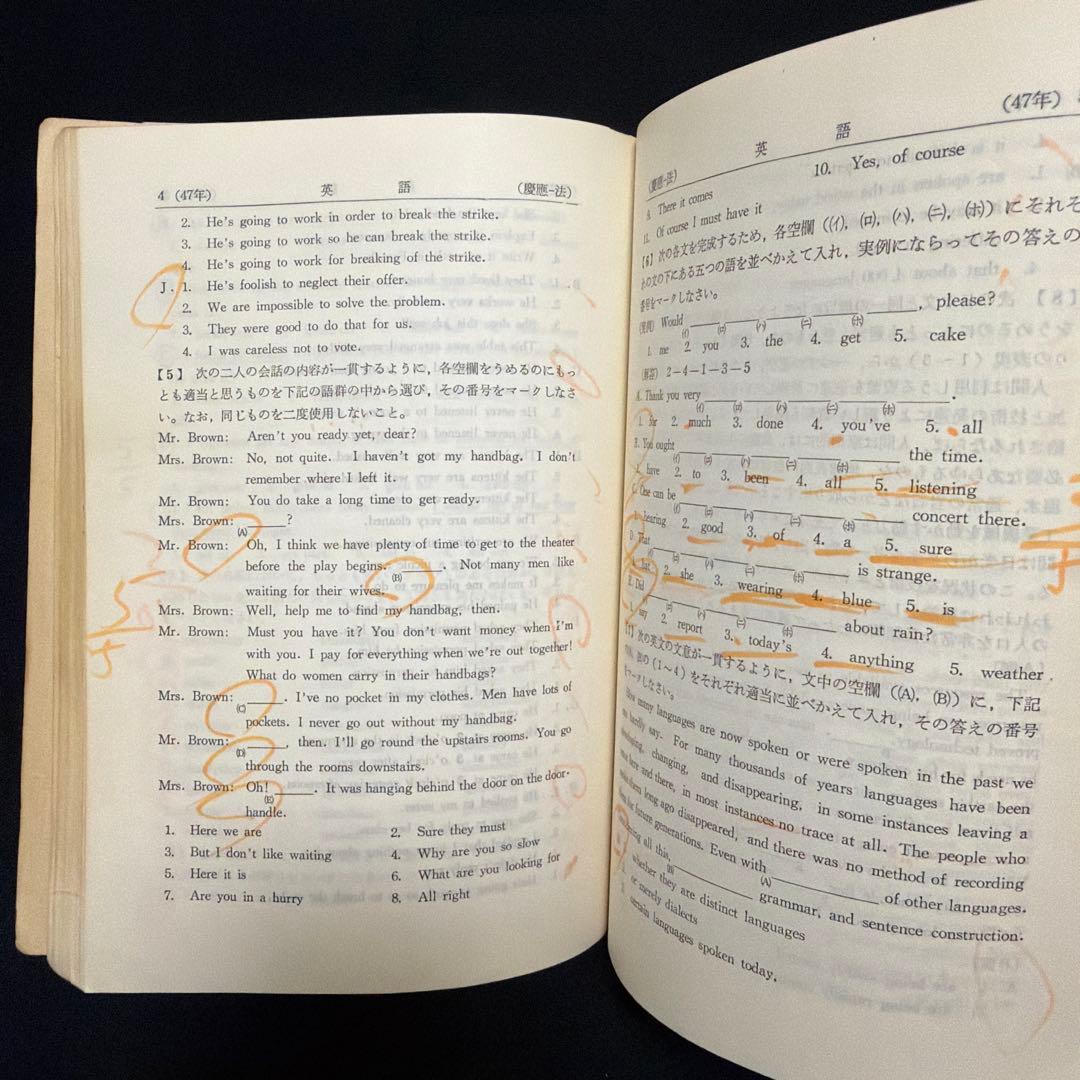 4 (47年) 英 語 (慶應-法)
2. He's going to work in order to break the strike.
3. He's going to work so he can break the strike.
4. He's going to work for breaking of the strike.
J. 1. He's foolish to neglect their offer.
2. We are impossible to solve the problem.
3. They were good to do that for us.
4. I was careless not to vote.
【5】 次の二人の会話の内容が一貫するように，各空欄をうめるのにもっ
とも適当と思うものを下記の語群の中から選び，その番号をマークしなさ
い。なお，同じものを二度使用しないこと。
Mr. Brown: Aren't you ready yet, dear?
Mrs. Brown: No, not quite. I haven't got my handbag. I don't
remember where I left it.
Mr. Brown: You do take a long time to get ready.
Mrs. Brown: ______?
(A)
Mr. Brown: Oh, I think we have plenty of time to get to the theater
before the play begins. ______. Not many men like
(B)
waiting for their wives.
Mrs. Brown: Well, help me to find my handbag, then.
Mr. Brown: Must you have it? You don't want money when I'm
with you. I pay for everything when we're out together!
What do women carry in their handbags?
Mrs. Brown: ______. I've no pocket in my clothes. Men have lots of
(C)
pockets. I never go out without my handbag.
Mr. Brown: ______, then. I'll go round the upstairs rooms. You go
(D)
through the rooms downstairs.
Mrs. Brown: Oh! ______. It was hanging behind the door on the door-
(E)
handle.
1. Here we are 2. Sure they must
3. But I don't like waiting 4. Why are you so slow
5. Here it is 6. What are you looking for
7. Are you in a hurry 8. All right
(慶應-法) 英 語 (47年)
9. There it comes 10. Yes, of course
11. Of course I must have it
【6】 次の各文を完成するため，各空欄（(イ)，(ロ)，(ハ)，(ニ)，(ホ)）にそれぞ
の文の下にある五つの語を並べかえて入れ，実例にならってその答えの
番号をマークしなさい。
(実例) Would ______, please?
(イ) (ロ) (ハ) (ニ) (ホ)
1. me 2. you 3. the 4. get 5. cake
(解答) 2-4-1-3-5
A. Think you very ______.
(イ) (ロ) (ハ) (ニ) (ホ)
1. for 2. much 3. done 4. you've 5. all
B. You ought ______ the time.
(イ) (ロ) (ハ) (ニ) (ホ)
1. have 2. to 3. been 4. all 5. listening
C. One can be ______ concert there.
(イ) (ロ) (ハ) (ニ) (ホ)
1. hearing 2. good 3. of 4. a 5. sure
D. That ______ is strange.
(イ) (ロ) (ハ) (ニ) (ホ)
1. hat 2. she 3. wearing 4. blue 5. is
E. Did ______ about rain?
(イ) (ロ) (ハ) (ニ) (ホ)
1. say 2. report 3. today's 4. anything 5. weather
【7】 次の英文の文意が一貫するように，文中の空欄（(A)，(B)）に，下記
の (1～4) をそれぞれ適当に並べかえて入れ，その答えの番号
をマークしなさい。
How many languages are now spoken or were spoken in the past we
can hardly say. For many thousands of years languages have been
developing, changing, and disappearing, in some instances leaving a
trace here and there, in most instances no trace at all. The people who
them long ago disappeared, and there was no method of recording
for future generations. Even with ______ of other languages.
(A)
all this, ______ grammar, and sentence construction.
(B)
whether they are distinct languages
or merely dialects
certain languages spoken today.